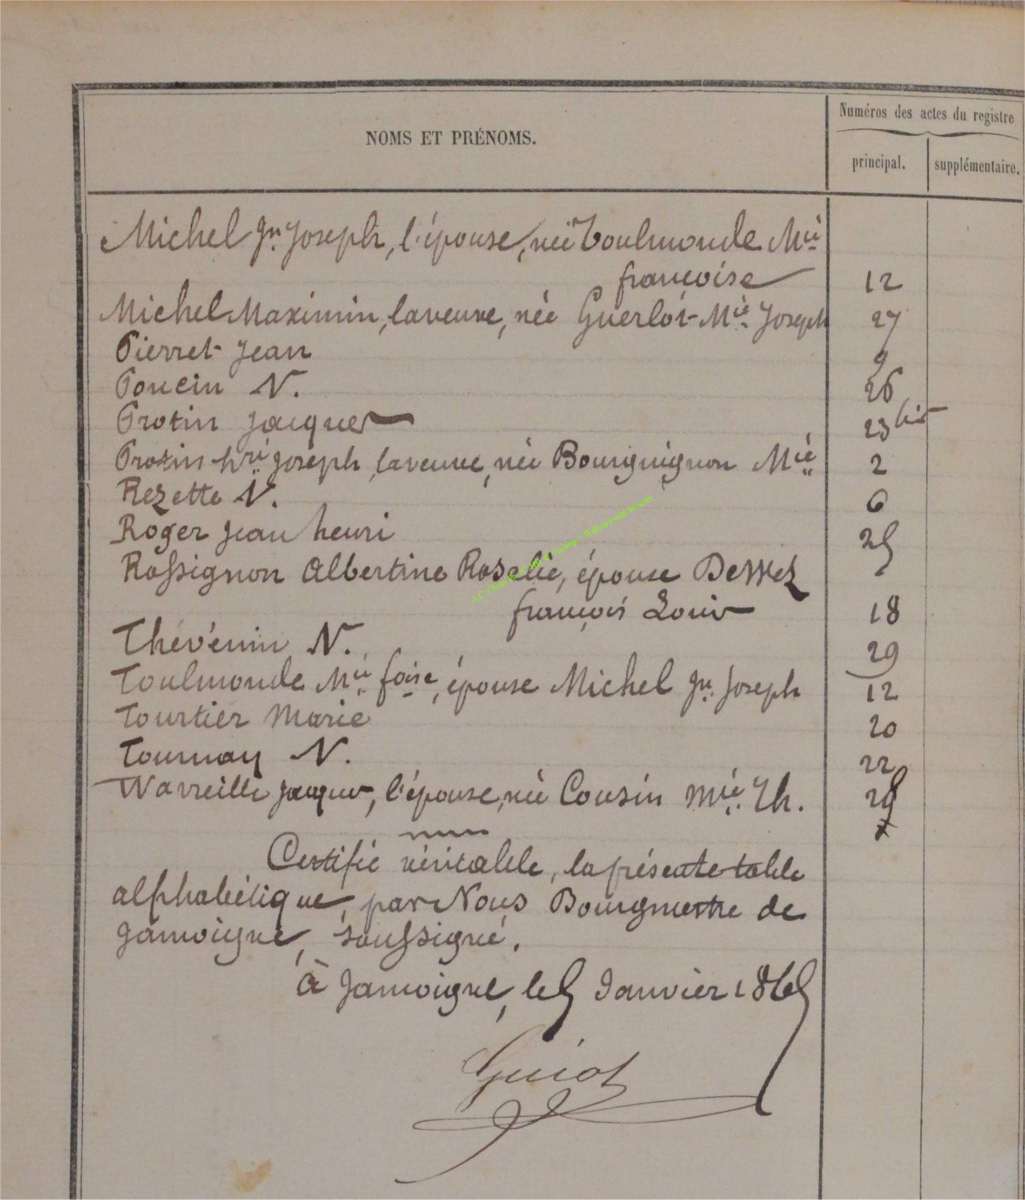 NOMS ET PRÉNOMS.
Numéros des actes du registre
principal. supplémentaire.
Michel Jn. Joseph, l'épouse, née Toulmonde Mie
françoise 12
Michel Maximin, la veuve, née Guerlot Mie. Joseph 27
Pierret Jean 9
Poncin N. 26
Protin Jacques 23 bis
Protin hri Joseph, la veuve, née Bourguignon Mie 2
Rezette N. 6
Roger Jean henri 25
Rossignon Albertine Rosalie, épouse Dewez
françois Louis 18
Thévenin N. 29
Toulmonde Mie foise, épouse Michel Jn. Joseph 12
Tourtier Marie 20
Tournay N. 22
Wavreille Jacques, l'épouse, née Cousin Mie. Th. 28
Certifié véritable, la présente table
alphabétique, par Nous Bourgmestre de
Jamoigne, soussigné.
à Jamoigne, le 5 Janvier 1865
Guiot